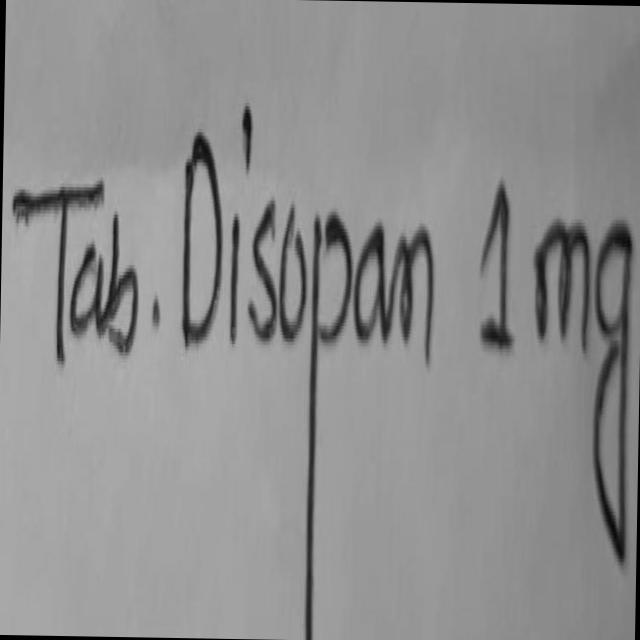 Tab. Disopan 1 mg